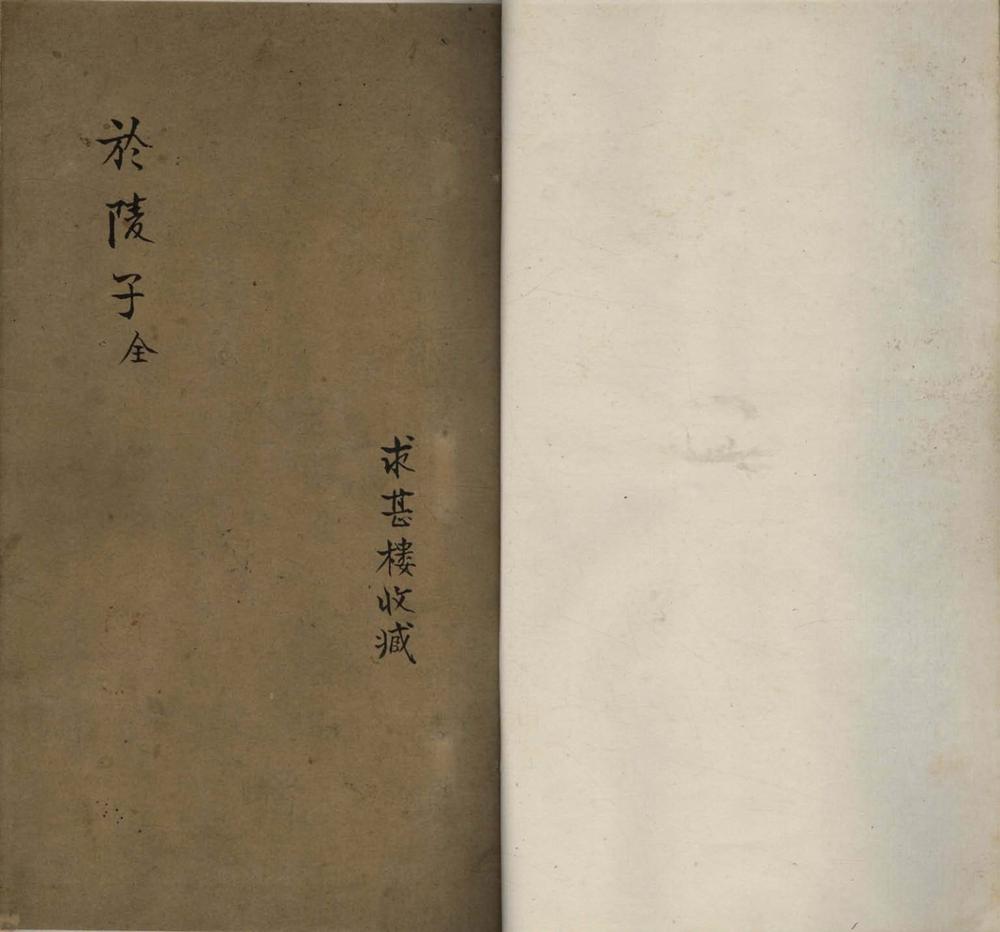 於陵子全
求甚樓收臧